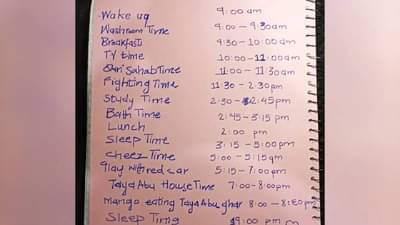 Wake up 9:00 am
Washroom Time 9:00 – 9:30am
Breakfast 9:30 – 10:00am
TV time 10:00 – 11:00am
Sahab Time 11:00 – 11:30am
Fighting Time 11:30 – 2:30pm
Study Time 2:30 – 2:45pm
Bath Time 2:45 – 3:15 pm
Lunch 2:00 pm
Sleep Time 3:15 – 5:00pm
cheez Time 5:00 – 5:15am
Play with red car 5:15 – 7:00pm
Taya Abu House Time 7:00 – 8:00pm
Mango eating Taya Abu ghar 8:00 –
Sleep Time 9:00 pm